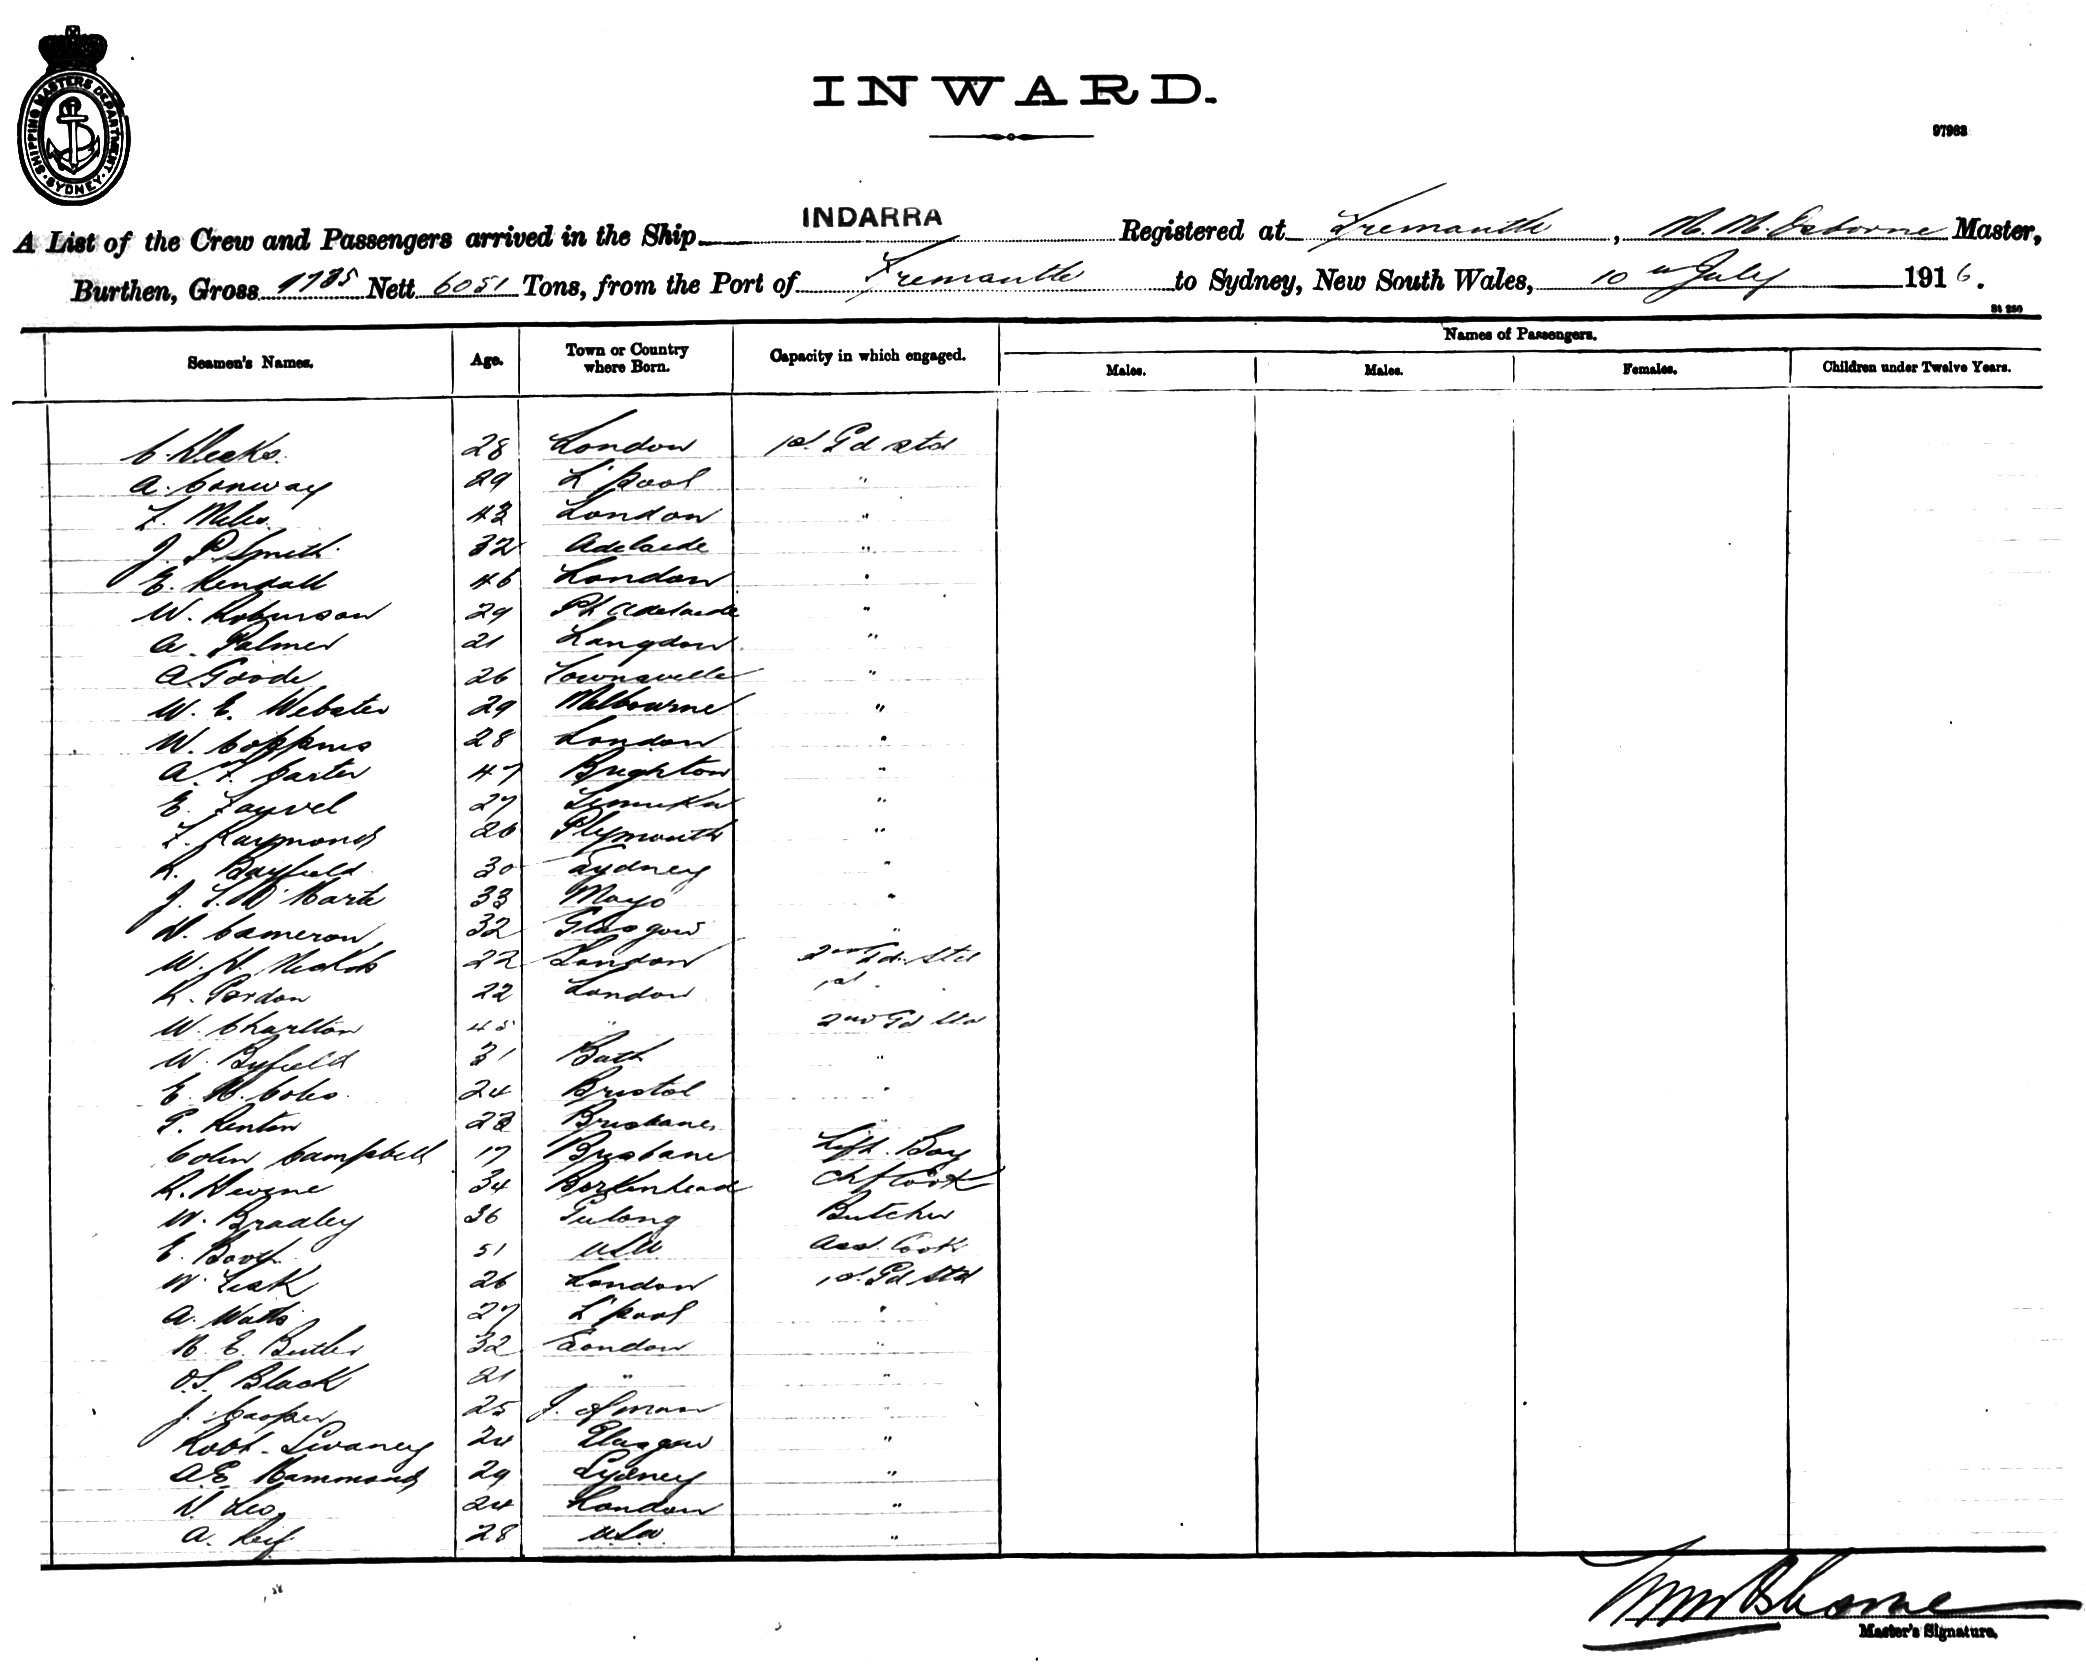 SHIPPING MASTERS DEPARTMENT. SYDNEY.
INWARD.
97963
A List of the Crew and Passengers arrived in the Ship INDARRA Registered at Fremantle, M. M. Osborne Master,
Burthen, Gross 9735 Nett 6051 Tons, from the Port of Fremantle to Sydney, New South Wales, 10th July 1916.
Seamen's Names. Age. Town or Country where Born. Capacity in which engaged. Names of Passengers.
Males. Males. Females. Children under Twelve Years.
28 London 1st. Gd std
A. Conway 29 L'pool "
F. Miles 43 London "
J. P. Smith 32 Adelaide "
E. Kendall 46 London "
W. Robinson 29 Pt. Adelaide "
A. Palmer 21 Langdon "
A. Goode 26 Townsville "
W. E. Webster 29 Melbourne "
W. Coppins 28 London "
A. F. Carter 47 Brighton "
E. 27 "
F. Raymond 26 Plymouth "
R. Bayfield 30 Sydney "
J. 33 Mayo "
D. Cameron 32 Glasgow "
W. H. 22 London 2nd Gd. Std
R. Gordon 22 London 1st "
W. Charlton 45 " 2nd Gd Std
W. Byfield 31 Bath "
E. H. Coles 24 Bristol "
G. Renton 22 Brisbane "
Colin Campbell 17 Brisbane Lift. Boy
R. Devine 34 Berkenhead Chf Cook
W. Bradley 36 Geelong Butcher
E. Booth 51 N.S.W Asst. Cook
W. Leak 26 London 1st. Gd Std
A. Watts 27 L'pool "
H. E. Butler 32 London "
O.S. Black 21 " "
J. Cooper 25 I. of man "
Robt. Swaney 24 Glasgow "
A.E. Hammond 29 Sydney "
D. Leo 24 London "
A. Reif 28 N.S.W. "
Master's Signature.